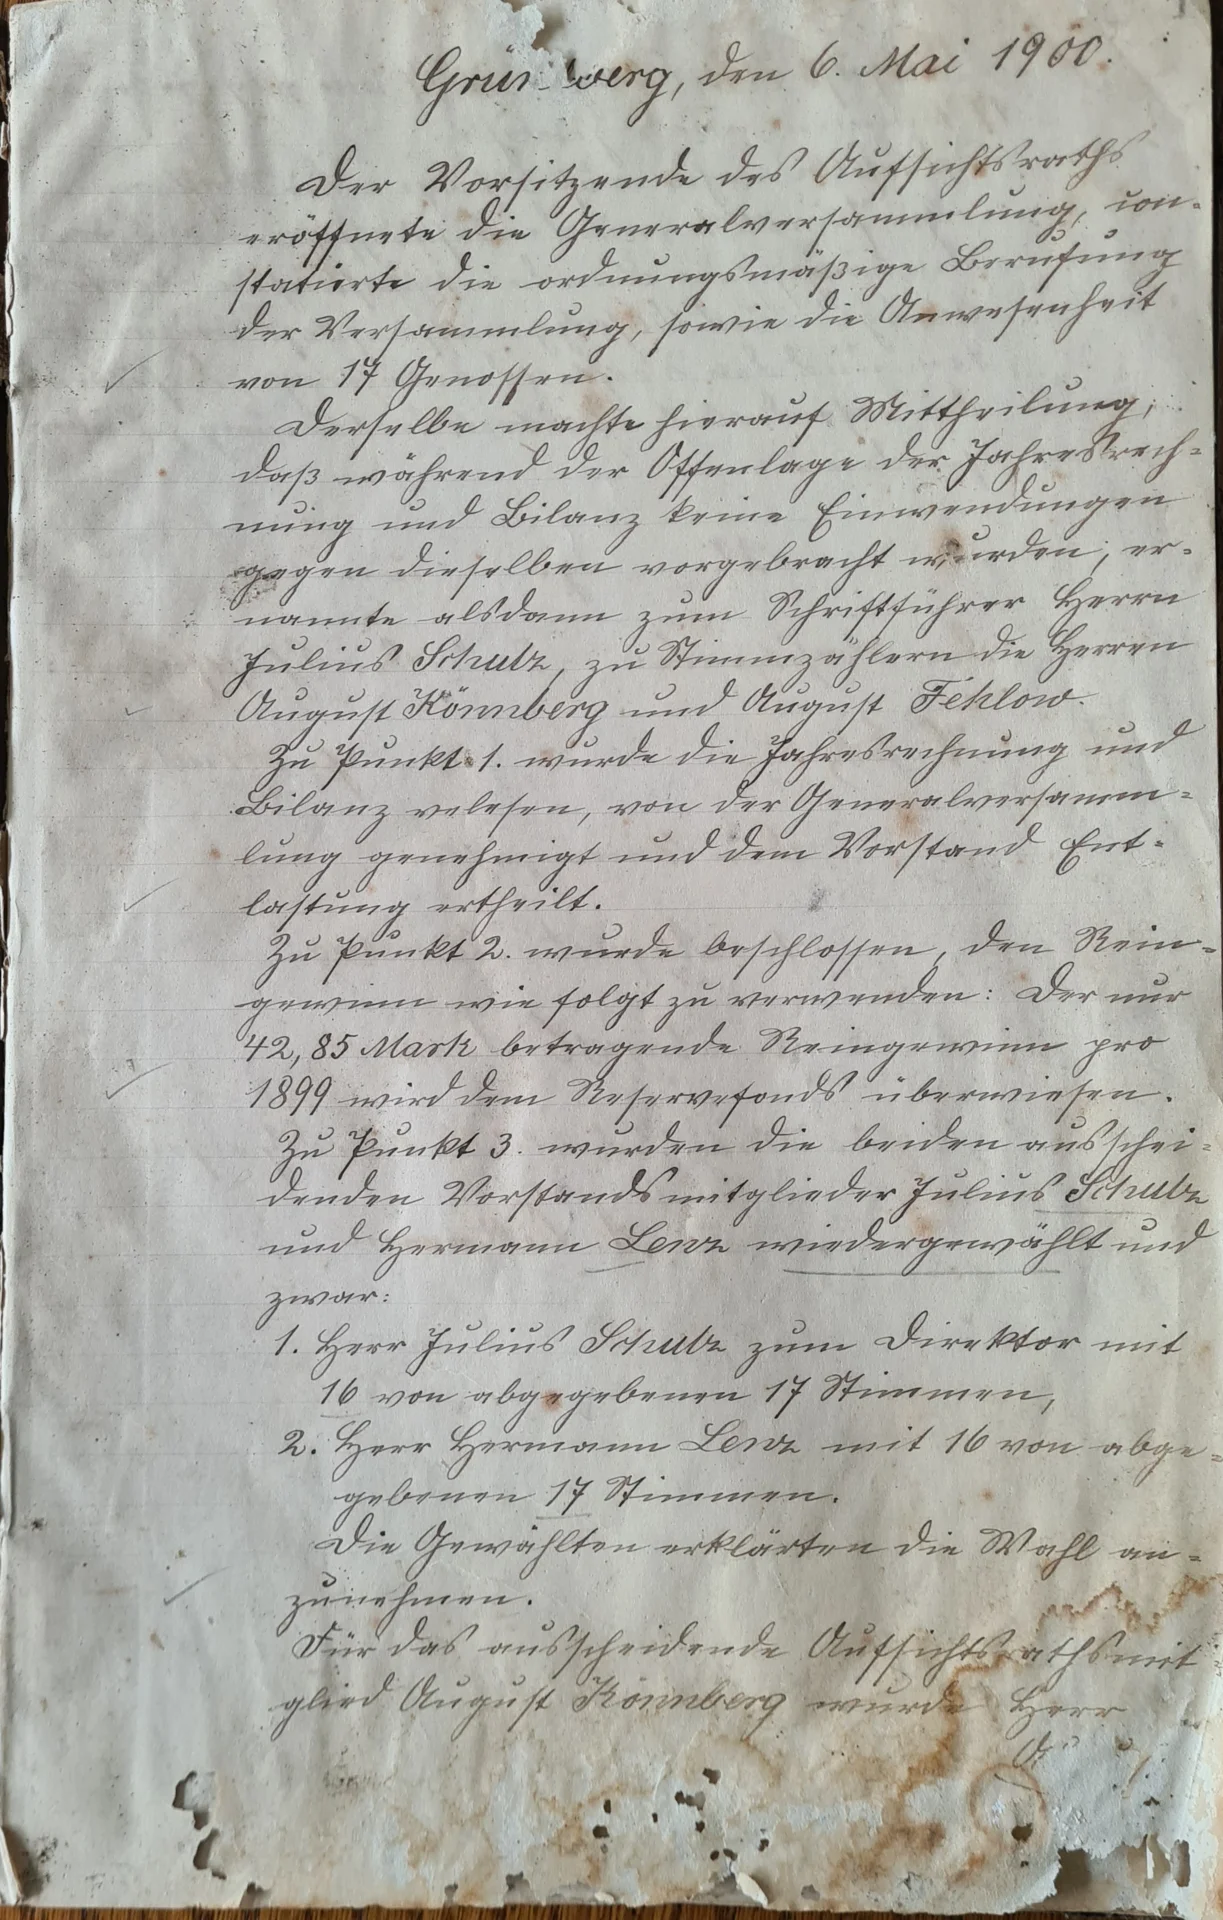 Grünberg, den 6. Mai 1900.
Der Vorsitzende des Aufsichtsraths
eröffnete die Generalversammlung, con-
statierte die ordnungsmäßige Berufung
der Versammlung, sowie die Anwesenheit
von 17 Genossen.
Derselbe machte hierauf Mittheilung,
daß während der Offenlage der Jahresrech-
nung und Bilanz keine Einwendungen
gegen dieselben vorgebracht wurden, er-
nannte alsdann zum Schriftführer Herrn
Julius Schulz, zu Stimmzählern die Herren
August Könnberg und August Fehlow.
Zu Punkt 1. wurde die Jahresrechnung und
Bilanz velesen, von der Generalversamm-
lung genehmigt und dem Vorstand Ent-
lastung ertheilt.
Zu Punkt 2. wurde beschlossen, den Rein-
gewinn wie folgt zu verwenden: Der nur
42,85 Mark betragende Reingewinn pro
1899 wird dem Reservefonds überwiesen.
Zu Punkt 3. wurden die beiden ausschei-
denden Vorstandsmitglieder Julius Schulz
und Hermann Lenz wiedergewählt und
zwar:
1. Herr Julius Schulz zum Direktor mit
16 von abgegebenen 17 Stimmen,
2. Herr Hermann Lenz mit 16 von abge-
gebenen 17 Stimmen.
Die Gewählten erklärten die Wahl an-
zunehmen.
Für das ausscheidende Aufsichtsrathsmit
glied August Könnberg wurde Herr